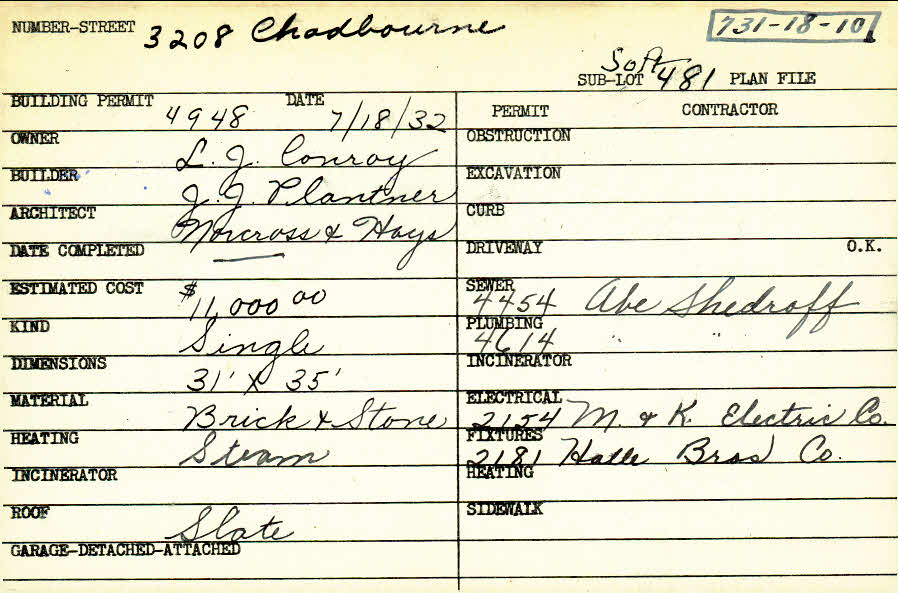 NUMBER-STREET 3208 Chadbourne 731-18-101
SUB-LOT 481 PLAN FILE
BUILDING PERMIT 4948 DATE 7/18/32
OWNER L. J. Conroy
BUILDER J. J. Plantner
ARCHITECT Norcross & Hays
DATE COMPLETED —
ESTIMATED COST $11,000 00
KIND Single
DIMENSIONS 31' x 35'
MATERIAL Brick & Stone
HEATING Steam
INCINERATOR
ROOF Slate
GARAGE-DETACHED-ATTACHED
PERMIT CONTRACTOR
OBSTRUCTION
EXCAVATION
CURB
DRIVEWAY O.K.
SEWER 4454 Abe Shedroff
PLUMBING 4614 " "
INCINERATOR
ELECTRICAL 2154 M. & K. Electric Co.
FIXTURES 2181 Halle Bros Co.
HEATING
SIDEWALK